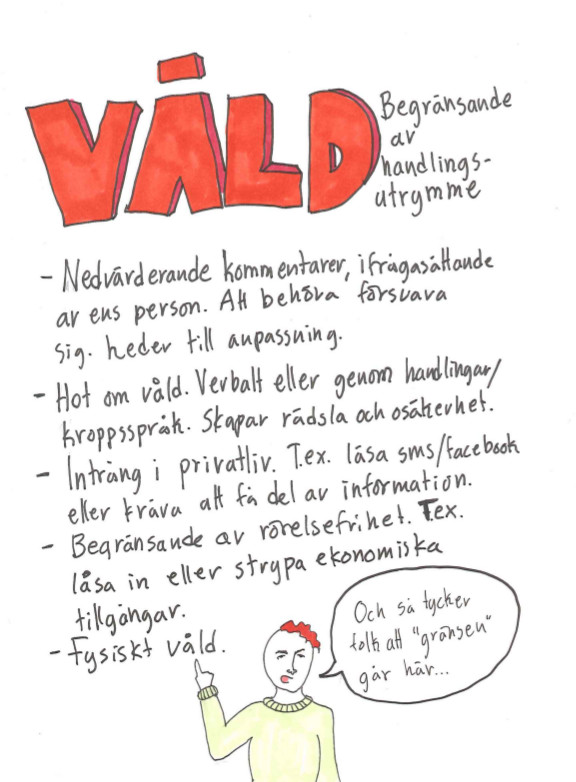 VÅLD
Begränsande
av
handlings-
utrymme
- Nedvärderande kommentarer, ifrågasättande
av ens person. Att behöva försvara
sig. Leder till anpassning.
- Hot om våld. Verbalt eller genom handlingar/
kroppsspråk. Skapar rädsla och osäkerhet.
- Intrång i privatliv. T.ex. läsa sms/facebook
eller kräva att få del av information.
- Begränsande av rörelsefrihet. T.ex.
låsa in eller strypa ekonomiska
tillgångar.
- Fysiskt våld.
Och så tycker
folk att "gränsen"
går här...